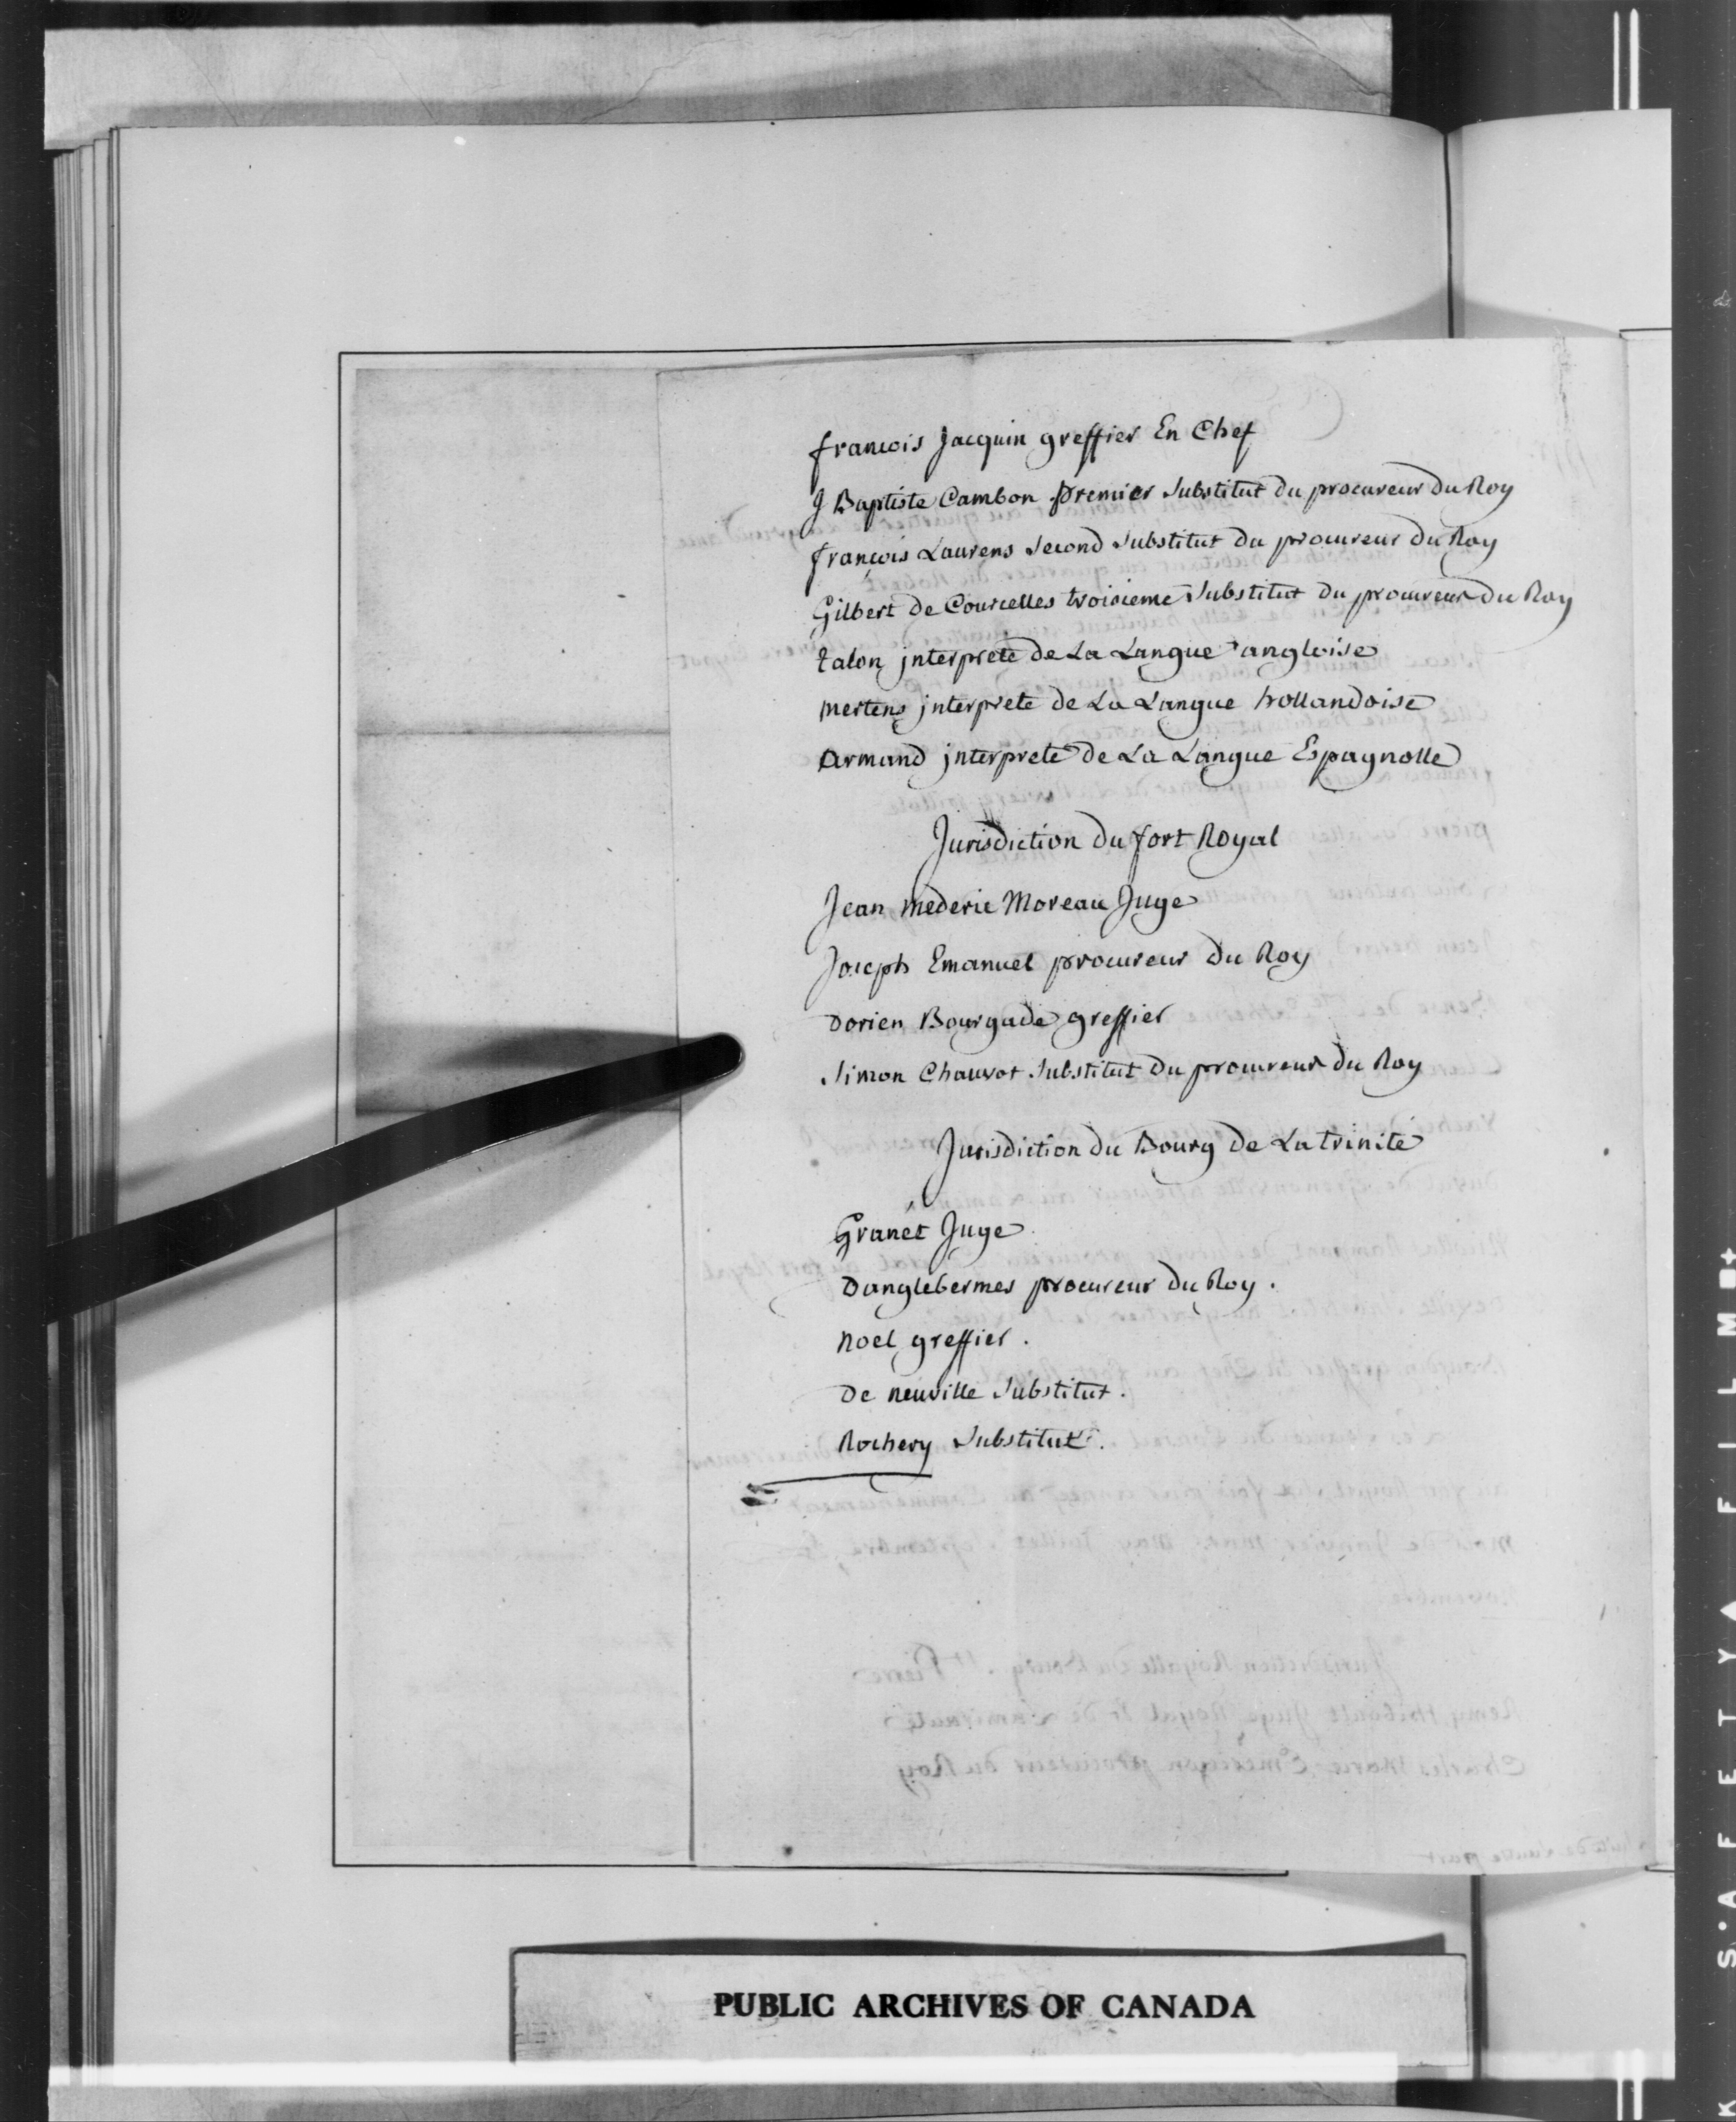 francois Jacquin greffier En Chef
J Baptiste Cambon premier Substitut du procureur du Roy
françois Laurens Second Substitut du procureur du Roy
Gilbert de Courcelles troisieme Substitut du procureur du Roy
talon jnterprete de La Langue angloise
mertens jnterprete de La Langue hollandoise
armand jnterprete de La Langue Espagnolle
Jurisdiction du fort Royal
Jean mederic Moreau Juge
Joseph Emanuel procureur du Roy
Dorien Bourgade greffier
Simon Chauvot Substitut du procureur du Roy
Jurisdiction du Bourg de La trinité
Granet Juge
Danglebermes procureur du Roy.
Noel greffier.
De neuville Substitut.
Rochery Substitut.
PUBLIC ARCHIVES OF CANADA